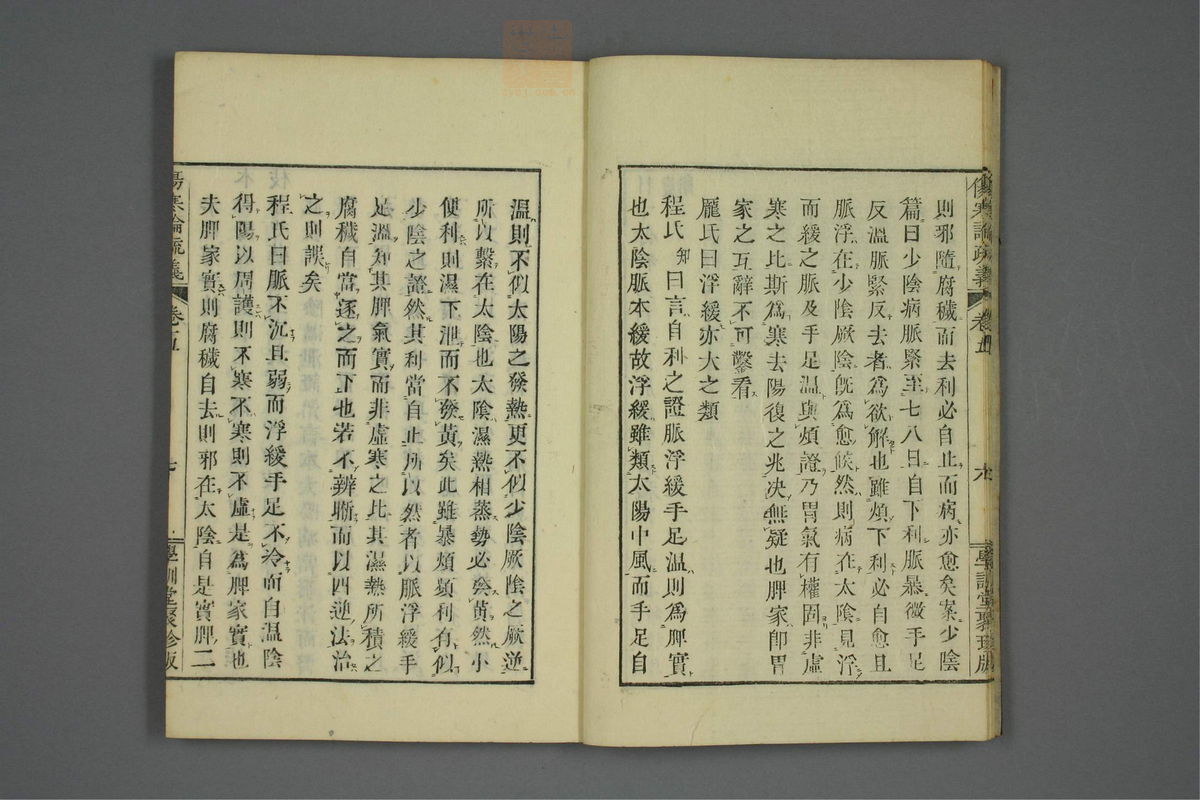 傷寒論疏義 卷五 六 學訓堂聚珍版
則邪隨腐穢而去利必自止而病亦愈矣案少陰
篇曰少陰病脈緊至七八日自下利脈暴微手足
反溫脈緊反去者爲欲解也雖煩下利必自愈且
脈浮在少陰厥陰旣爲愈候然則病在太陰見浮
而緩之脈及手足溫與煩證乃胃氣有權固非虛
寒之比斯爲寒去陽復之兆决無疑也脾家卽胃
家之互辭不可鑿看
龐氏曰浮緩亦大之類
程氏知曰言自利之證脈浮緩手足溫則爲脾實
也太陰脈本緩故浮緩雖類太陽中風而手足自
溫則不似太陽之發熱更不似少陰厥陰之厥逆
所以繫在太陰也太陰濕熱相蒸勢必發黃然小
便利則濕下泄而不發黃矣此雖暴煩頻利有似
少陰之證然其利當自止所以然者以脈浮緩手
足溫知其脾氣實而非虛寒之比其濕熱所積之
腐穢自當逐之而下也若不辨晰而以四逆法治
之則誤矣
程氏曰脈不沉且弱而浮緩手足不冷而自溫陰
得陽以周護則不寒不寒則不虛是爲脾家實也
夫脾家實則腐穢自去則邪在太陰自是實脾二
傷寒論疏義 卷五 七 學訓堂聚珍版